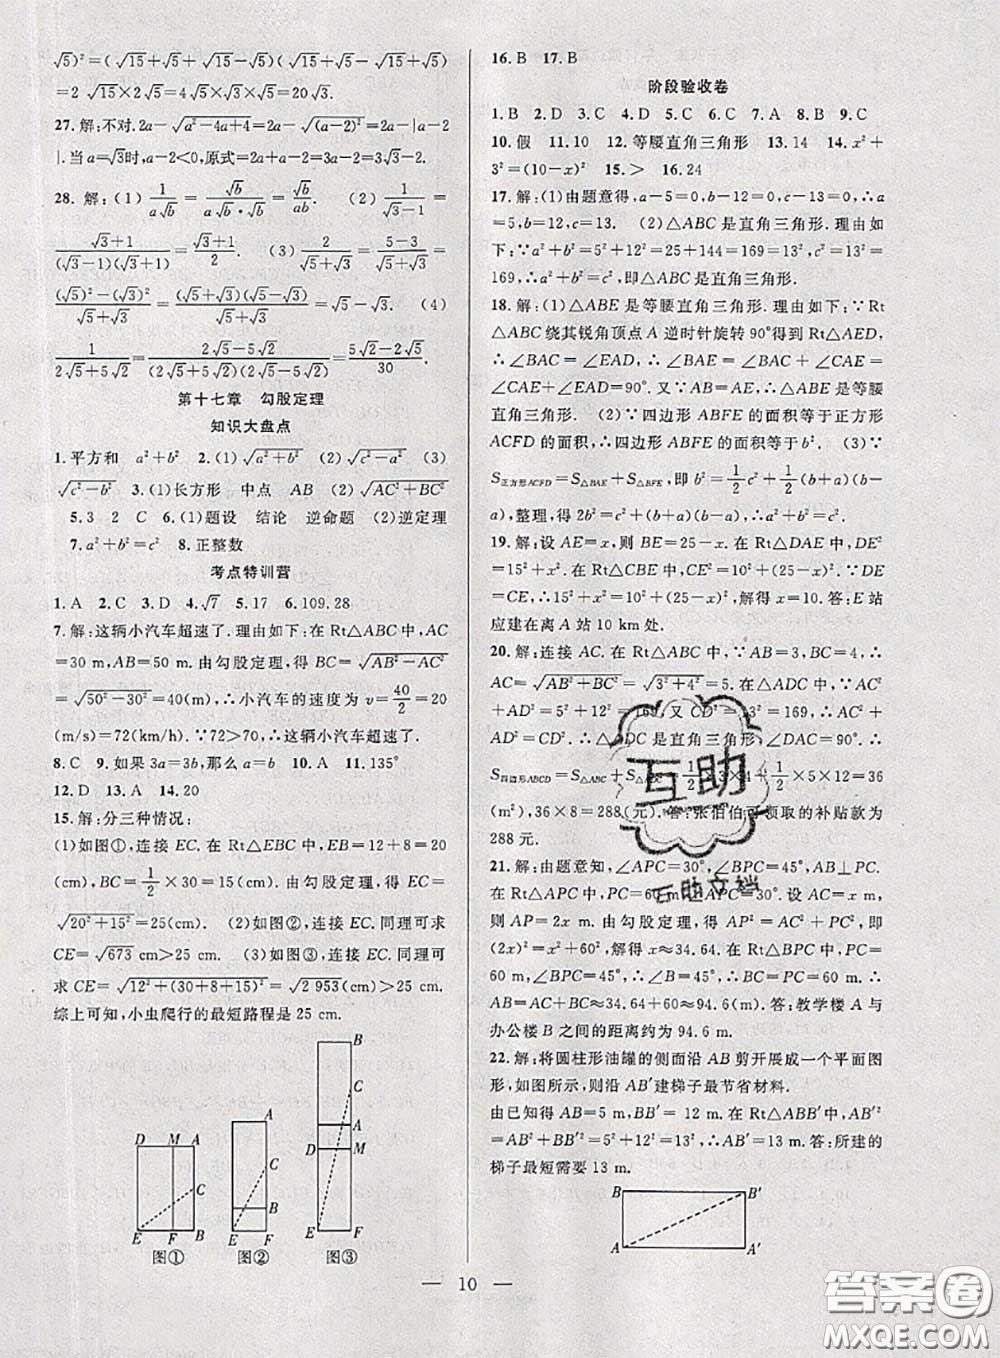 √5)²=(√15+√5+√15-√5)(√15+√5-√15+√5)
=2√15×2√5=4√75=20√3.
27.解:不对.2a-√(a²-4a+4)=2a-√(a-2)²=2a-|a-2
|.当a=√3时,a-2<0,原式=2a+a-2=3a-2=3√3-2.
28.解:(1) 1/(a√b)=√b/(a√b·√b)=√b/(ab). (2) 1/(√3-1)=
(√3+1)/((√3-1)(√3+1))=(√3+1)/2. (3) 2/(√5+√3)=(5-3)/(√5+√3)=
((√5)²-(√3)²)/(√5+√3)=(√5+√3)(√5-√3)/(√5+√3)=√5-√3. (4)
1/(2√5+5√2)=(2√5-5√2)/((2√5+5√2)(2√5-5√2))=(5√2-2√5)/30
第十七章 勾股定理
知识大盘点
1.平方和 a²+b² 2.(1)√(a²+b²) (2)√(c²-a²) (3)
√(c²-b²) 3.(1)长方形 中点 AB (2)√(AC²+BC²)
5.3 2 C 6.(1)题设 结论 逆命题 (2)逆定理
7.a²+b²=c² 8.正整数
考点特训营
1.A 2.C 3.D 4.√7 5.17 6.109.28
7.解:这辆小汽车超速了.理由如下:在Rt△ABC中,AC
=30 m,AB=50 m.由勾股定理,得BC=√(AB²-AC²)
=√(50²-30²)=40(m),∴小汽车的速度为v=40/2=20
(m/s)=72(km/h).∵72>70,∴这辆小汽车超速了.
8.C 9.如果3a=3b,那么a=b 10.A 11.135°
12.D 13.A 14.20
15.解:分三种情况:
(1)如图①,连接EC.在Rt△EBC中,EB=12+8=20
(cm),BC=1/2×30=15(cm).由勾股定理,得EC=
√(20²+15²)=25(cm). (2)如图②,连接EC.同理可求
CE=√673 cm>25 cm. (3)如图③,连接EC.同理可
求CE=√(12²+(30+8+15)²)=√2 953(cm)>25 cm.
综上可知,小虫爬行的最短路程是25 cm.
D M A C E F B 图①
A C B E F 图②
B C A D M E F 图③
16.B 17.B
阶段验收卷
1.B 2.D 3.C 4.D 5.C 6.C 7.A 8.B 9.C
10.假 11.10 12.等腰直角三角形 13.14 14.x²+
3²=(10-x)² 15.> 16.24
17.解:(1)由题意得,a-5=0,b-12=0,c-13=0,∴a
=5,b=12,c=13. (2)△ABC是直角三角形.理由如
下:∵a²+b²=5²+12²=25+144=169=13²,c²=13²=
169,∴a²+b²=c²,即△ABC是直角三角形.
18.解:(1)△ABE是等腰直角三角形.理由如下:∵Rt
△ABC绕其锐角顶点A逆时针旋转90°得到Rt△AED,
∴∠BAC=∠EAD,∴∠BAE=∠BAC+∠CAE=
∠CAE+∠EAD=90°.又∵AB=AE,∴△ABE是等腰
直角三角形. (2)∵四边形ABFE的面积等于正方形
ACFD的面积,∴四边形ABFE的面积等于b². (3)∵
S正方形ACFD=S△BAE+S△BFE,即b²=1/2c²+1/2(b+a)(b-
a),整理,得2b²=c²+(b+a)(b-a).∴a²+b²=c².
19.解:设AE=x,则BE=25-x.在Rt△DAE中,DE²
=15²+x².在Rt△CBE中,CE²=10²+(25-x)².∵DE
=CE,∴15²+x²=10²+(25-x)²,解得x=10.答:E站
应建在离A站10 km处.
20.解:连接AC.在Rt△ABC中,∵AB=3,BC=4,∴
AC=√(AB²+BC²)=√(3²+4²)=5.在△ADC中,∵AC²
+AD²=5²+12²=169,又CD²=13²=169,∴AC²+
AD²=CD²,∴△ADC是直角三角形,∠DAC=90°,∴
S四边形ABCD=S△ABC+S△ADC=1/2×3×4+1/2×5×12=36
(m²),36×8=288(元).答:张伯伯可领取的补贴款为
288元.
21.解:由题意知,∠APC=30°,∠BPC=45°,AB⊥PC.
在Rt△APC中,PC=60 m,∠APC=30°.设AC=x m,
则AP=2x m.由勾股定理,得AP²=AC²+PC²,即
(2x)²=x²+60²,解得x≈34.64.在Rt△BPC中,PC=
60 m,∠BPC=45°,∴∠B=45°,∴BC=PC=60 m.∴
AB=AC+BC≈34.64+60≈94.6(m).答:教学楼A与
办公楼B之间的距离约为94.6 m.
22.解:将圆柱形油罐的侧面沿AB剪开展成一个平面图
形,如图所示,则沿AB′建梯子最节省材料.
由已知得AB=5 m,BB′=12 m.在Rt△ABB′中,AB′²
=AB²+BB′²=5²+12²=13²,∴AB′=13 m.答:所建的
梯子最短需要13 m.
B B′ A A′
10
互助
互助文档
答案圈
MXQE.COM